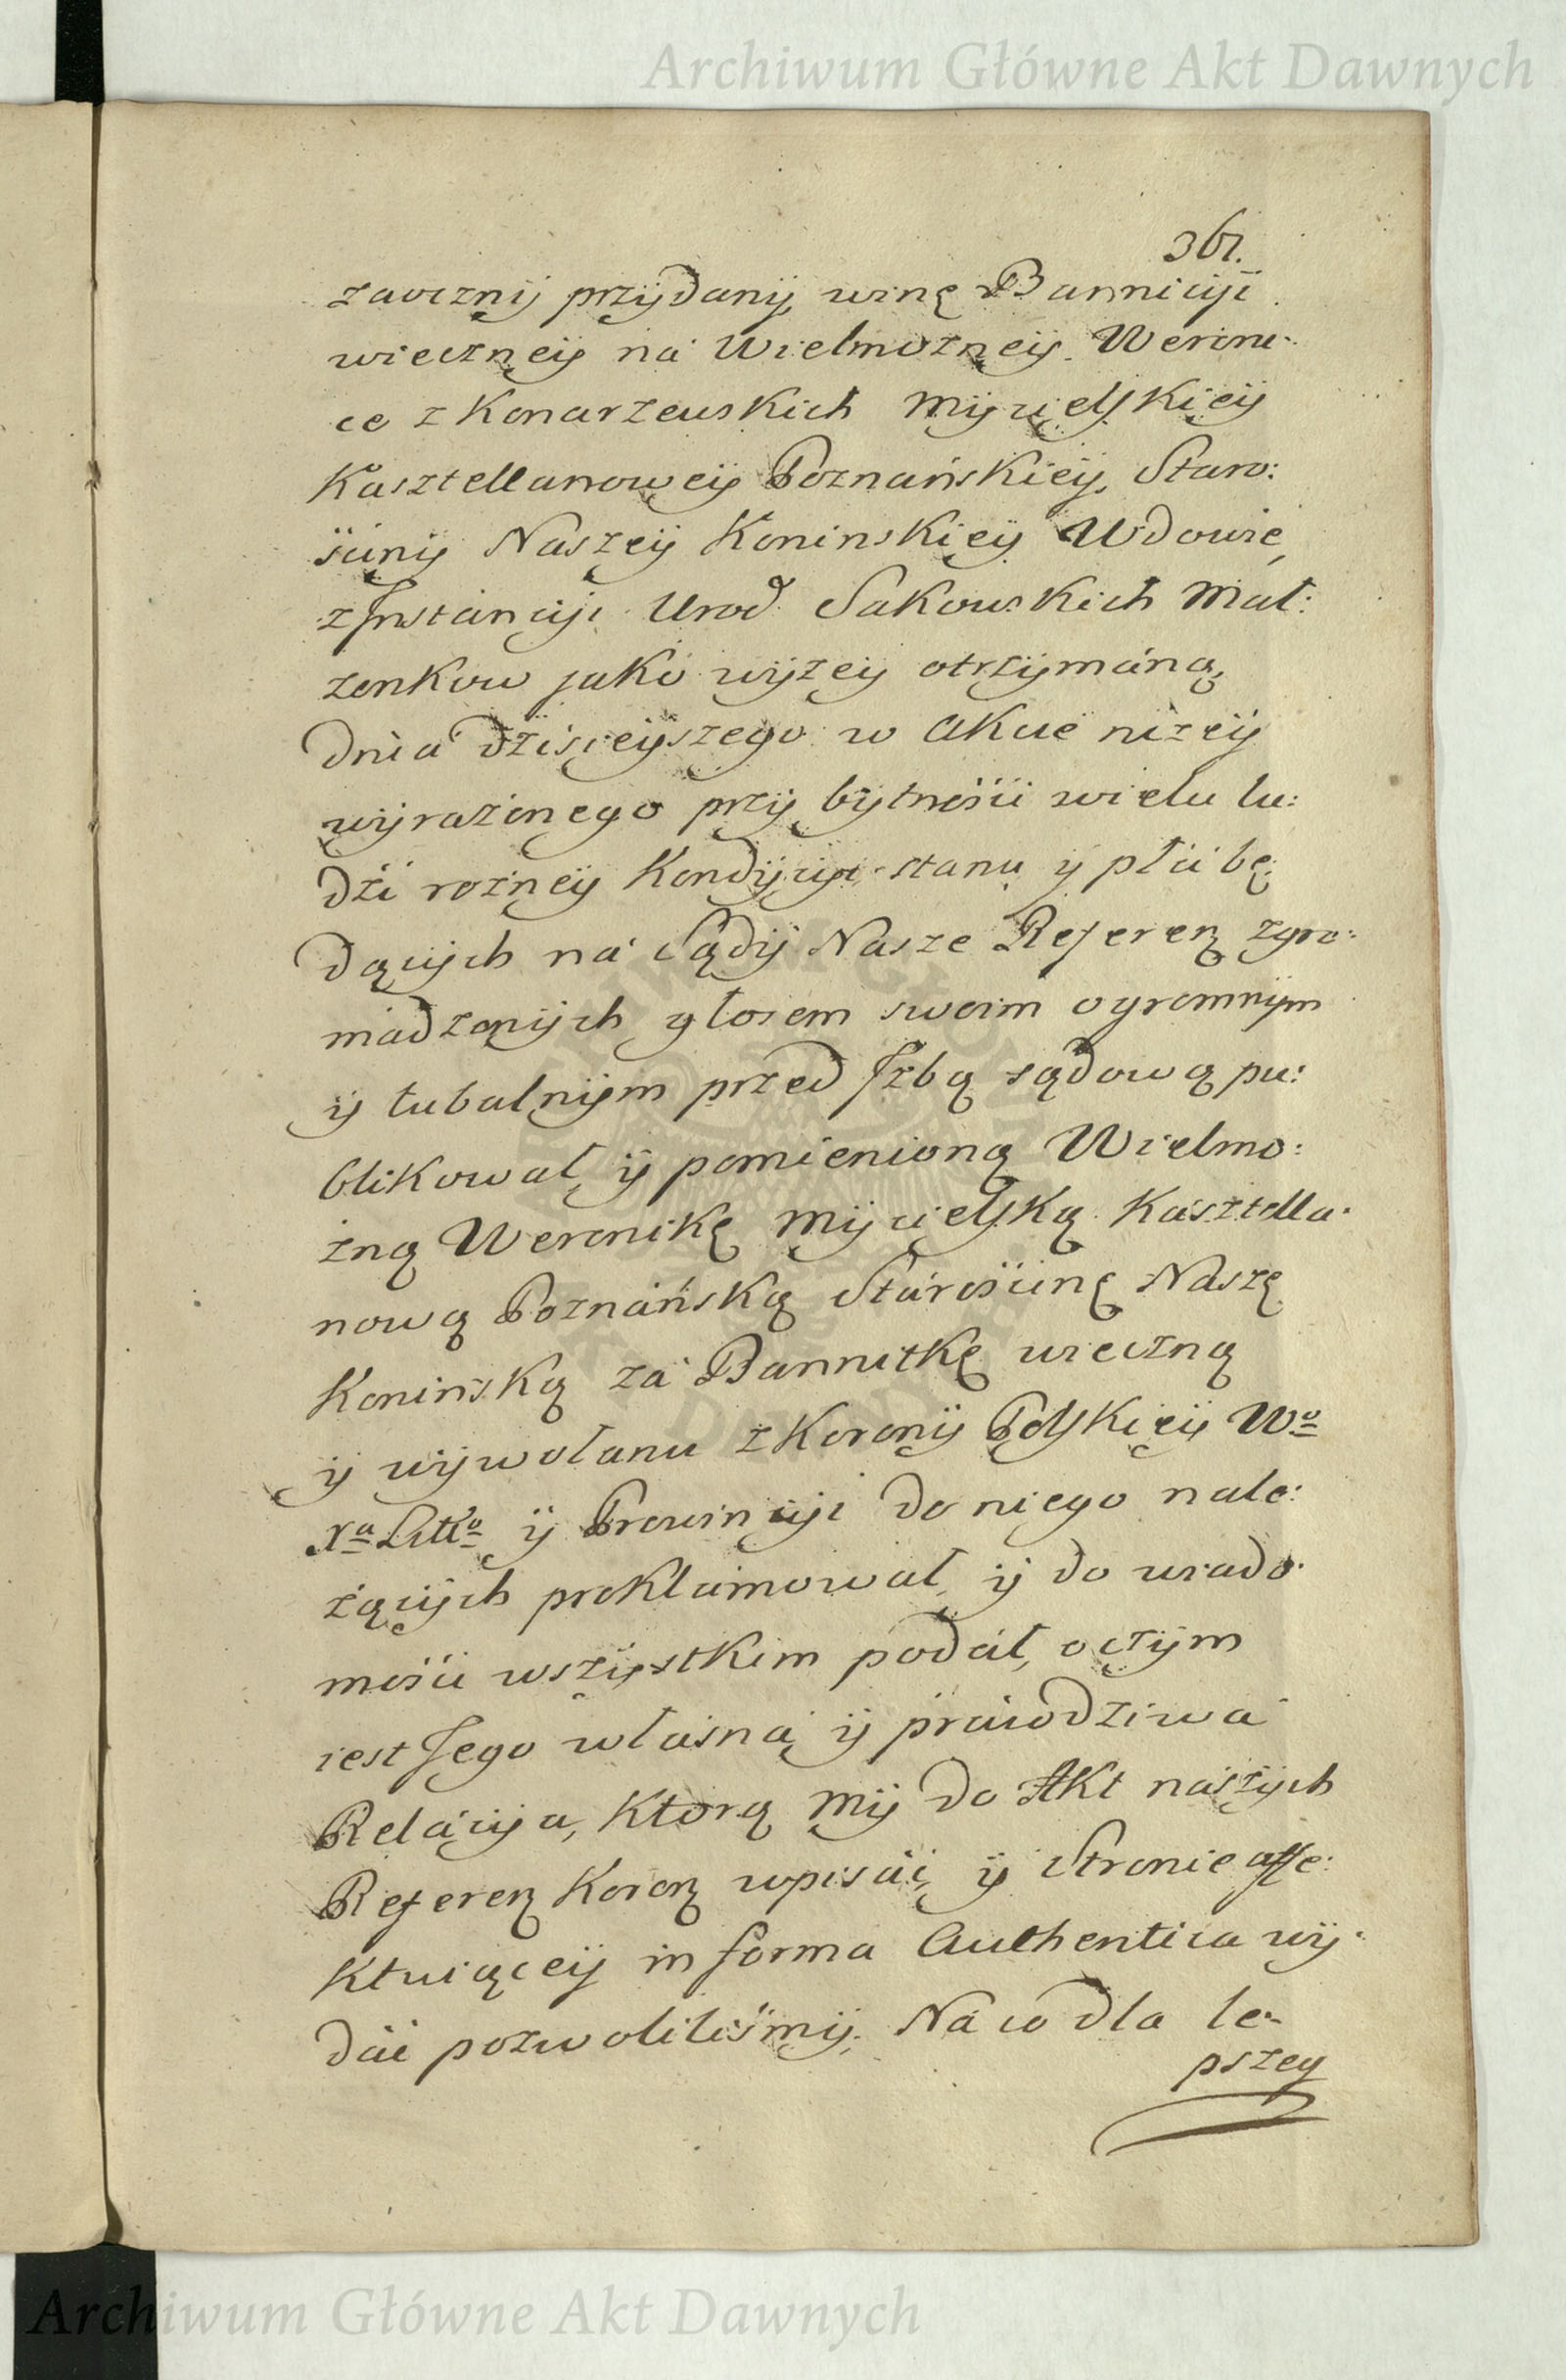 Archiwum Główne Akt Dawnych
361.
zaocznij przÿdanÿ, winę Bannicÿi
wieczneÿ ná Wielmożneÿ Weroni:
ce z Konarzewskich Mÿcielskieÿ
Kasztellanoweÿ Poznańskieÿ, Staro:
ścinÿ Naszeÿ Koninskieÿ Wdowie,
z Jnstáncÿi Urod Sakowskich Mał:
zonkow jako wÿżeÿ otrzÿmáną,
dnia dzisieÿszego w Akcie niżeÿ
wÿrażonego przÿ bÿtności wielu lu:
dźi rożneÿ Kondÿcÿi stanu ÿ płci bę:
dącÿch ná Sądÿ Nasze Referen zgro:
mádzonÿch głosem swoim ogromnÿm
ÿ tubalnÿm przed Jzbą sądową pu:
blikował, ÿ pomienioną Wielmo:
żną Weronikę Mÿcielską Kásztella:
nową Poznáńską Stárościnę Naszę
Konińską zá Bannitkę wieczną
ÿ wÿwołanu z Koronÿ Polskieÿ Wº
Xª Littº ÿ Prowincÿi do niego nale:
żącÿch proklámował, ÿ do wiado:
mości wszÿstkim podał, o czÿm
iest Jego własná ÿ práwdziwa
Relácÿa, Ktorą Mÿ do Akt nászÿch
Referen Koron wpisáć, ÿ Stronie affe:
Ktuiąceÿ in forma Authentica wÿ:
dáć pozwoliliśmÿ. Ná co dla le:
pszeg
Archiwum Główne Akt Dawnych